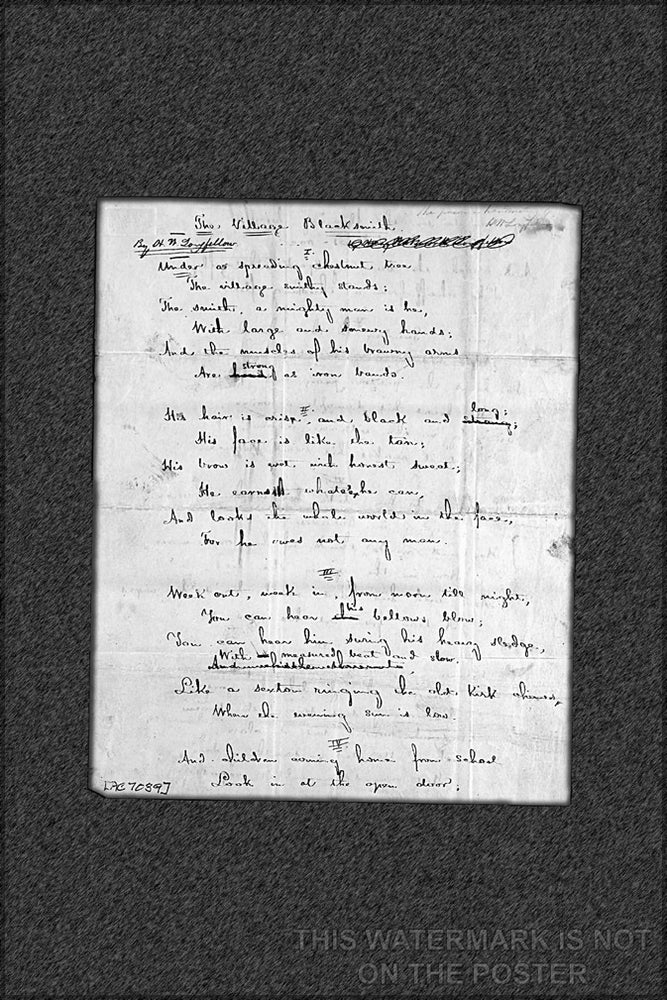 The Village Blacksmith
By H. W. Longfellow
I
Under a spreading chestnut tree
The village smithy stands;
The smith, a mighty man is he,
With large and sinewy hands;
And the muscles of his brawny arms
Are hard strong as iron bands.
II
His hair is crisp, and black and strong long;
His face is like the tan;
His brow is wet with honest sweat;
He earns whate'er he can,
And looks the whole world in the face,
For he owes not any man.
III
Week out, week in, from morn till night,
You can hear his bellows blow;
You can hear him swing his heavy sledge,
With measured beat and slow,
Like a sexton ringing the old kirk chimes,
When the evening sun is low.
IV
And children coming home from school
Look in at the open door;
[AC7089]
THIS WATERMARK IS NOT
ON THE POSTER